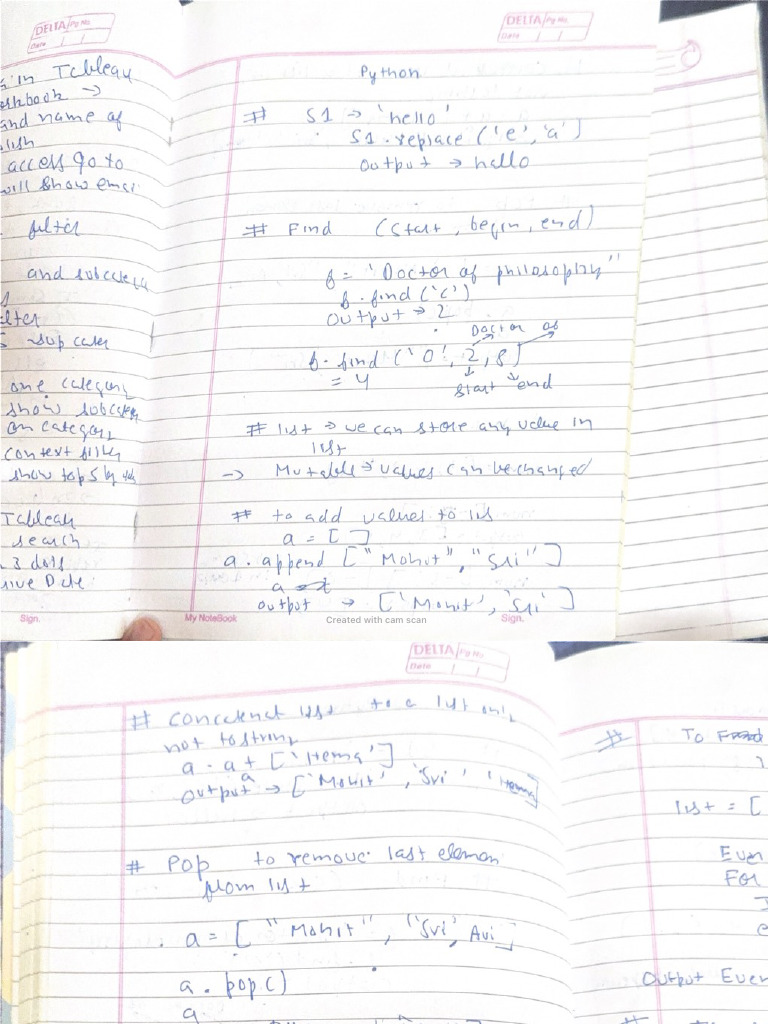 DELTA Pg No.
Date
in Tableau
and name of
access go to
will show
filter
and
one category
show
on category
context
show top 5 by
Tableau
search
3 dots
Date
Sign.
DELTA Pg No.
Date
Python
# S1 → 'hello'
S1.replace ('e', 'a')
output → hallo
# Find (start, begin, end)
f = "Doctor of philosophy"
f.find('c')
output → 2
Doctor of
f.find ('o', 2, 8)
= 4 start end
# list → we can store any value in
list
→ Mutable → values can be changed
# to add values to lis
a = [ ]
a.append ["Mohit", "Sri"]
a
output → ['Mohit', 'Sri']
My NoteBook
Created with cam scan
Sign.
DELTA Pg No.
Date
# concatenat list to a list only
not to string
a. a + ['Hema']
a
output → ['Mohit', 'Sri' 'Hema]
# Pop to remove last elemen
from list
a = ["Mohit", "Sri', Avi]
a.pop()
a.
# To
list = [
Even
For
Output Even
#